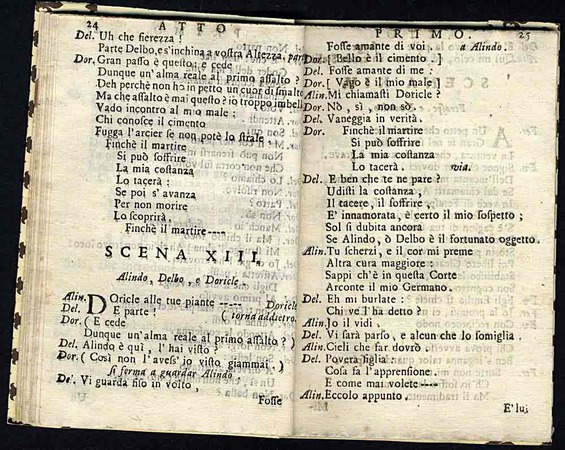 24 ATTO
Del. Uh che fierezza!
Parte Delbo, e s'inchina a vostra Altezza. parte
Dor. Gran passo è questo: e cede
Dunque un'alma reale al primo assalto?
Deh perchè non hò in petto un cuor di smalto
Ma che assalto è mai questo? è io troppo imbelle
Vado incontro al mio male:
Chi conosce il cimento
Fugga l'arcier se non potè lo strale,
Finchè il martire
Si può soffrire
La mia costanza
Lo tacerà:
Se poi s'avanza
Per non morire
Lo scoprirà.
Finchè il martire----
SCENA XIII.
Alindo, Delbo, e Doricle.
Alin. Doricle alle tue piante ----- Doricle
Del. E parte! (torna addietro.
Dor. (E cede
Dunque un'alma reale al primo assalto?)
Del. Alindo è quì, l'hai visto?
Dor. (Così non l'aves'io visto giammai.)
si ferma a guardar Alindo
De'. Vi guarda fiso in volto,
Fosse
PRIMO. 25
Fosse amante di voi. a Alindo.
Dor. [Bello è il cimento.]
Del. Fosse amante di me:
Dor. [Vago è il mio male]
Alin. Mi chiamasti Doricle?
Dor. Nò, sì, non sò.
Del. Vaneggia in verità.
Dor. Finchè il martire
Si può soffrire
La mia costanza
Lo tacerà. via.
Del. E ben che te ne pare?
Udisti la costanza,
Il tacere, il soffrire,
E' innamorata, è certo il mio sospetto;
Sol si dubita ancora
Se Alindo, ò Delbo è il fortunato oggetto.
Alin. Tu scherzi, e il cor mi preme
Altra cura maggiore:
Sappi ch'è in questa Corte
Arconte il mio Germano.
Del. Eh mi burlate:
Chi ve l'ha detto?
Alin. Io il vidi.
Del. Vi sarà parso, è alcun che lo somiglia.
Alin. Cieli che far dovrò
Del. Povera figlia:
Cosa fa l'apprensione.
E come mai volete----
Alin. Eccolo appunto.
E' lui